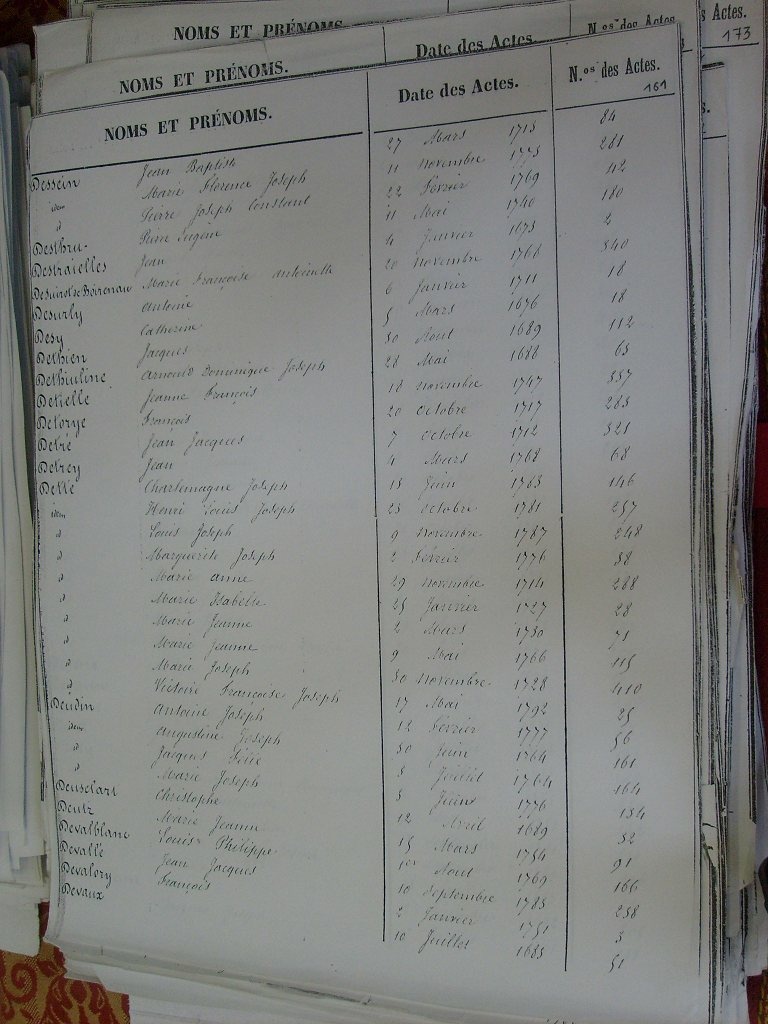 NOMS ET PRÉNOMS.
NOMS ET PRÉNOMS. Date des Actes. N.os des Actes. 173
NOMS ET PRÉNOMS. Date des Actes. N.os des Actes. 161
Dessein Jean Baptiste 27 Mars 1713 84
idem Marie Florence Joseph 11 Novembre 1773 281
d Pierre Joseph Constant 22 Février 1769 42
Desthru- Pierre Eugène 11 Mai 1740 180
Destraielles Jean 4 Janvier 1673 2
Marie Françoise Antoinette 20 Novembre 1766 340
Desurly Antoine 6 Janvier 1711 18
Desy Catherine 5 Mars 1676 18
Dethien Jacques 30 Aout 1689 112
Dethiuline Arnould Dominique Joseph 28 Mai 1688 63
Detielle Jeanne François 18 Novembre 1747 337
Detorye François 20 Octobre 1717 263
Detré Jean Jacques 7 Octobre 1712 321
Detrey Jean 4 Mars 1768 68
Detté Charlemagne Joseph 15 Juin 1763 146
idem Henri Louis Joseph 23 Octobre 1781 257
d Louis Joseph 9 Novembre 1787 248
d Marguerite Joseph 2 Février 1776 38
d Marie Anne 29 Novembre 1714 288
d Marie Isabelle 25 Janvier 1727 28
d Marie Jeanne 2 Mars 1730 71
d Marie Jeanne 9 Mai 1766 115
d Marie Joseph 30 Novembre 1728 410
d Victoire Françoise Joseph 17 Mai 1792 25
Deudin Antoine Joseph 12 Février 1777 56
idem Augustine Joseph 30 Juin 1764 161
d Jacques Félix 8 Juillet 1764 164
d Marie Joseph 3 Juin 1776 134
Deusclart Christophe 12 Avril 1689 32
Deutz Marie Jeanne 15 Mars 1754 91
Devalblanc Louis Philippe 1er Aout 1769 166
Devallé Jean Jacques 10 Septembre 1783 238
Devalory François 2 Janvier 1751 3
Devaux 10 Juillet 1685 51